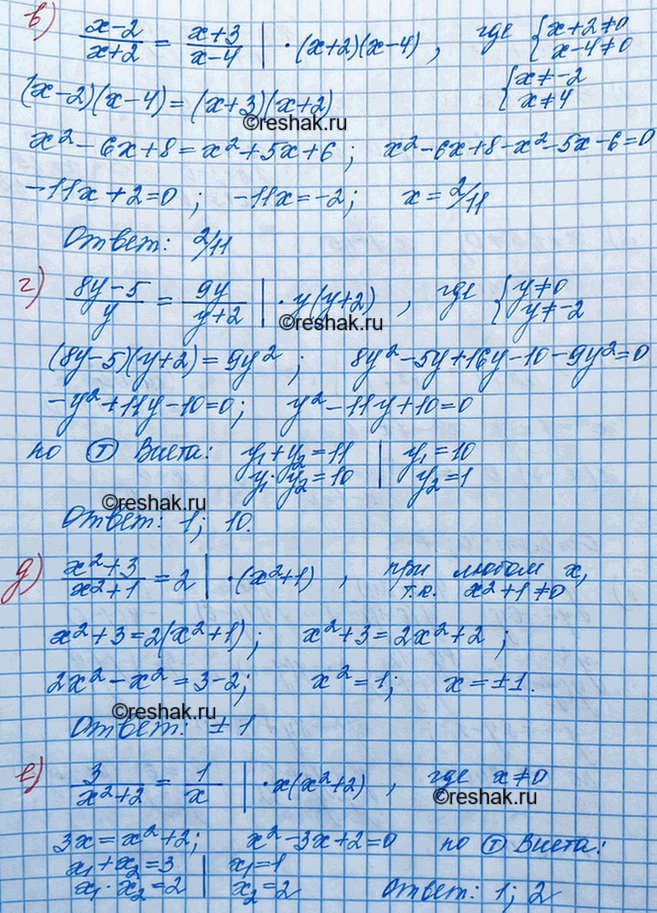 в) (x-2)/(x+2) = (x+3)/(x-4) | ·(x+2)(x-4), где { x+2≠0 x-4≠0
(x-2)(x-4)=(x+3)(x+2) { x≠-2 x≠4
©reshak.ru
x²-6x+8=x²+5x+6; x²-6x+8-x²-5x-6=0
-11x+2=0; -11x=-2; x=2/11
Ответ: 2/11
г) (8y-5)/y = 9y/(y+2) | ·y(y+2), где { y≠0 y≠-2
©reshak.ru
(8y-5)(y+2)=9y²; 8y²-5y+16y-10-9y²=0
-y²+11y-10=0; y²-11y+10=0
по Ⓣ Виета: y₁+y₂=11 | y₁=10
y₁·y₂=10 | y₂=1
©reshak.ru
Ответ: 1; 10.
д) (x²+3)/(x²+1) = 2 | ·(x²+1), при любом x,
т.к. x²+1≠0
x²+3=2(x²+1); x²+3=2x²+2;
2x²-x²=3-2; x²=1; x=±1.
©reshak.ru
Ответ: ±1
е) 3/(x²+2) = 1/x | ·x(x²+2), где x≠0
©reshak.ru
3x=x²+2; x²-3x+2=0 по Ⓣ Виета:
x₁+x₂=3 | x₁=1
x₁·x₂=2 | x₂=2 Ответ: 1; 2